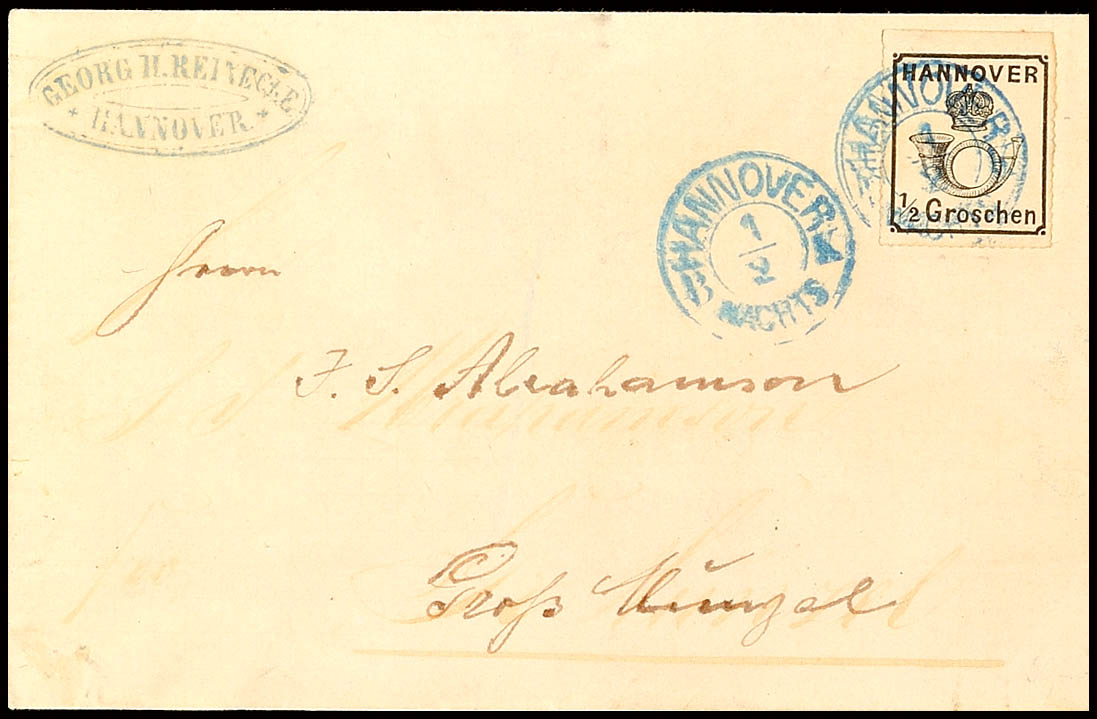 GEORG H. REINECKE
* HANNOVER. *
HANNOVER
1/2 Groschen
HANNOVER
1
2
NACHTS
HANNOVER
1
Herrn
J. S. Abrahamson
Groß Munzel